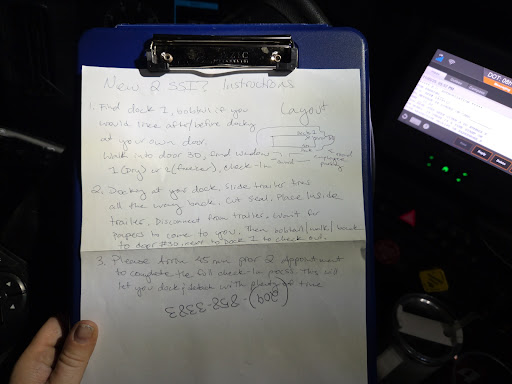 New 2 SSI? Instructions
1. Find dock 1, bobtail if you
would like after/before docking
at your own door.
Walk into door 30, find window
1 (Dry) or 2 (freezer), check-in
Layout
2. Docking at your dock, Slide trailer tires
all the way back. Cut seal. Place inside
trailer. Disconnect from trailer. Wait for
papers to come to you. Then bobtail/walk back
to door #30 next to Dock 1 to check out.
3. Please Arrive 45 min prior 2 Appointment
to complete the full check-in process. This will
let you dock/detach with plenty of time
(209)-858-3383